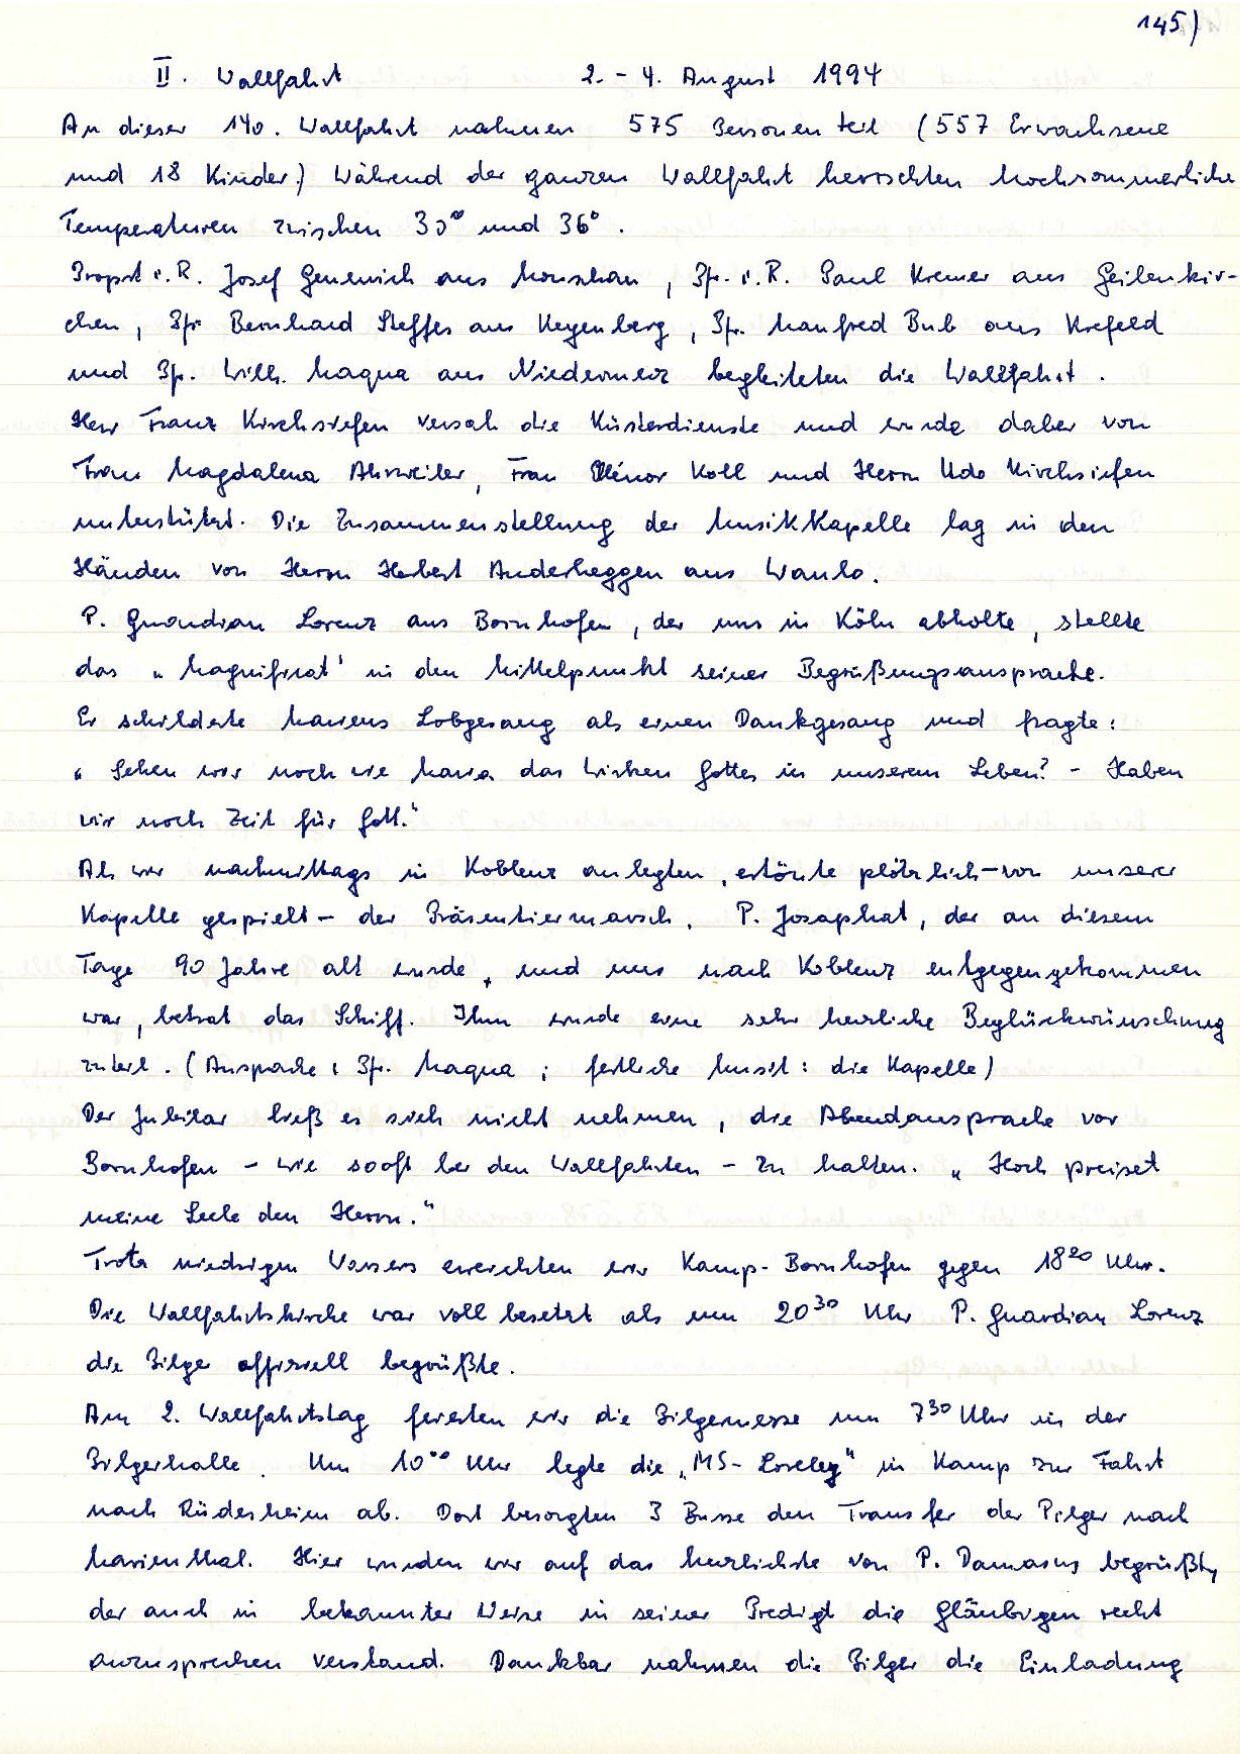 145)
II. Wallfahrt 2. - 4. August 1994
An dieser 140. Wallfahrt nahmen 575 Personen teil (557 Erwachsene
und 18 Kinder.) Während der ganzen Wallfahrt herrschten hochsommerliche
Temperaturen zwischen 30° und 36°.
Propst i.R. Josef aus Monschau, Pfr. i.R. Paul Kremer aus Geilenkir-
chen, Pfr Bernhard Steffes aus Keyenberg, Pfr. Manfred Bub aus Krefeld
und Pfr. Wilh. Maqua aus Niedermerz begleiteten die Wallfahrt.
Herr Franz Kirchsiefen versah die Küsterdienste und wurde dabei von
Frau Magdalena Ahrweiler, Frau Ellinor Koll und Herrn Udo Kirchsiefen
unterstützt. Die Zusammenstellung der Musikkapelle lag in den
Händen von Herrn Herbert Anderheggen aus Wanlo.
P. Guardian Lorenz aus Bornhofen, der uns in Köln abholte, stellte
das „Magnificat" in den Mittelpunkt seiner Begrüßungsansprache.
Er schilderte Mariens Lobgesang als einen Dankgesang und fragte:
„Sehen wir noch wie Maria das Wirken Gottes in unserem Leben? - Haben
wir noch Zeit für Gott."
Als wir nachmittags in Koblenz anlegten, ertönte plötzlich - von unserer
Kapelle gespielt - der Präsentiermarsch. P. Josaphat, der an diesem
Tage 90 Jahre alt wurde, und uns nach Koblenz entgegengekommen
war, betrat das Schiff. Ihm wurde eine sehr herzliche Beglückwünschung
zuteil. (Ansprache: Pfr. Maqua; festliche Musik: die Kapelle)
Der Jubilar ließ es sich nicht nehmen, die Abendansprache vor
Bornhofen - wie sooft bei den Wallfahrten - zu halten. „Hoch preiset
meine Seele den Herrn."
Trotz niedrigen Wassers erreichten wir Kamp-Bornhofen gegen 18²⁰ Uhr.
Die Wallfahrtskirche war voll besetzt als um 20³⁰ Uhr P. Guardian Lorenz
die Pilger offiziell begrüßte.
Am 2. Wallfahrtstag feierten wir die Pilgermesse um 7³⁰ Uhr in der
Pilgerhalle. Um 10⁰⁰ Uhr legte die „MS-Loreley" in Kamp zur Fahrt
nach Rüdesheim ab. Dort besorgten 3 Busse den Transfer der Pilger nach
Marienthal. Hier wurden wir auf das herzlichste von P. Damasus begrüßt,
der auch in bekannter Weise in seiner Predigt die Gläubigen recht
anzusprechen verstand. Dankbar nahmen die Pilger die Einladung